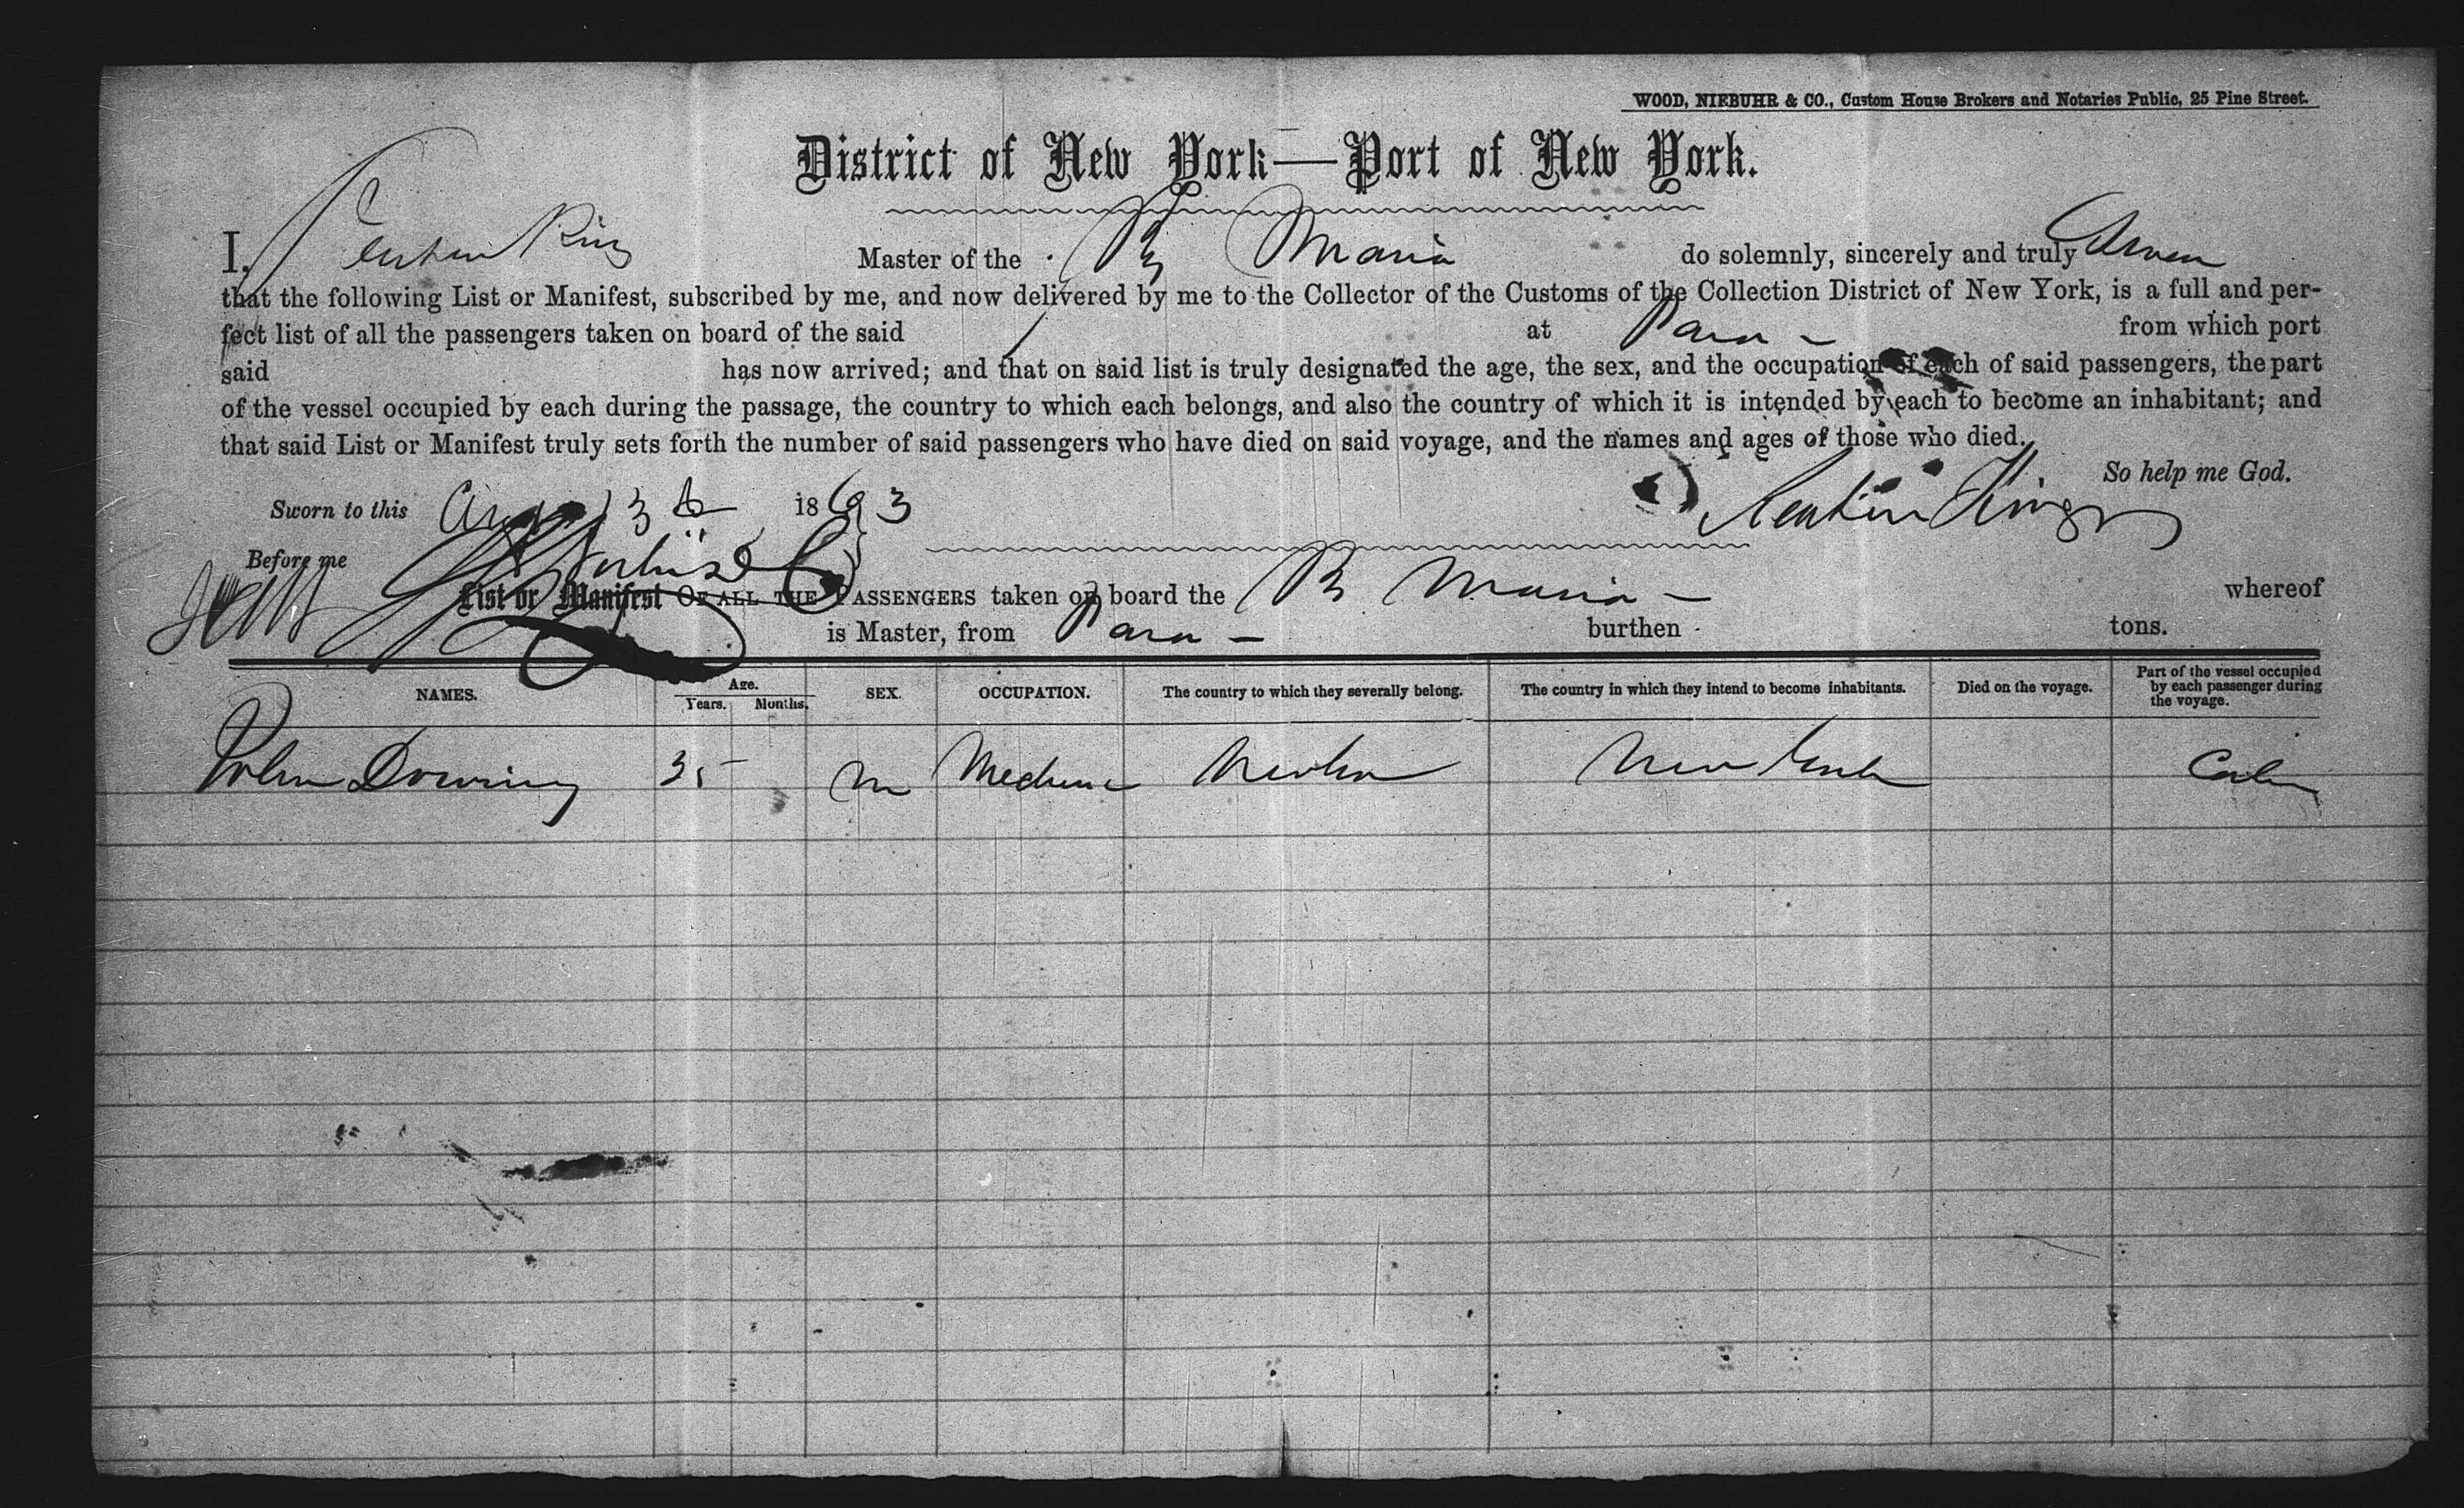 WOOD, NIEBUHR & CO., Custom House Brokers and Notaries Public, 25 Pine Street.
District of New York—Port of New York.
I, King Master of the Maria do solemnly, sincerely and truly Swear
that the following List or Manifest, subscribed by me, and now delivered by me to the Collector of the Customs of the Collection District of New York, is a full and per-
fect list of all the passengers taken on board of the said at Para — from which port
said has now arrived; and that on said list is truly designated the age, the sex, and the occupation of each of said passengers, the part
of the vessel occupied by each during the passage, the country to which each belongs, and also the country of which it is intended by each to become an inhabitant; and
that said List or Manifest truly sets forth the number of said passengers who have died on said voyage, and the names and ages of those who died.
So help me God.
Sworn to this Aug 13th 1863 King
Before me
List or Manifest OF ALL THE PASSENGERS taken on board the Maria — whereof
is Master, from Para — burthen tons.
NAMES. Age. Years. Months. SEX. OCCUPATION. The country to which they severally belong. The country in which they intend to become inhabitants. Died on the voyage. Part of the vessel occupied by each passenger during the voyage.
John Downing 35 M New York Cabin